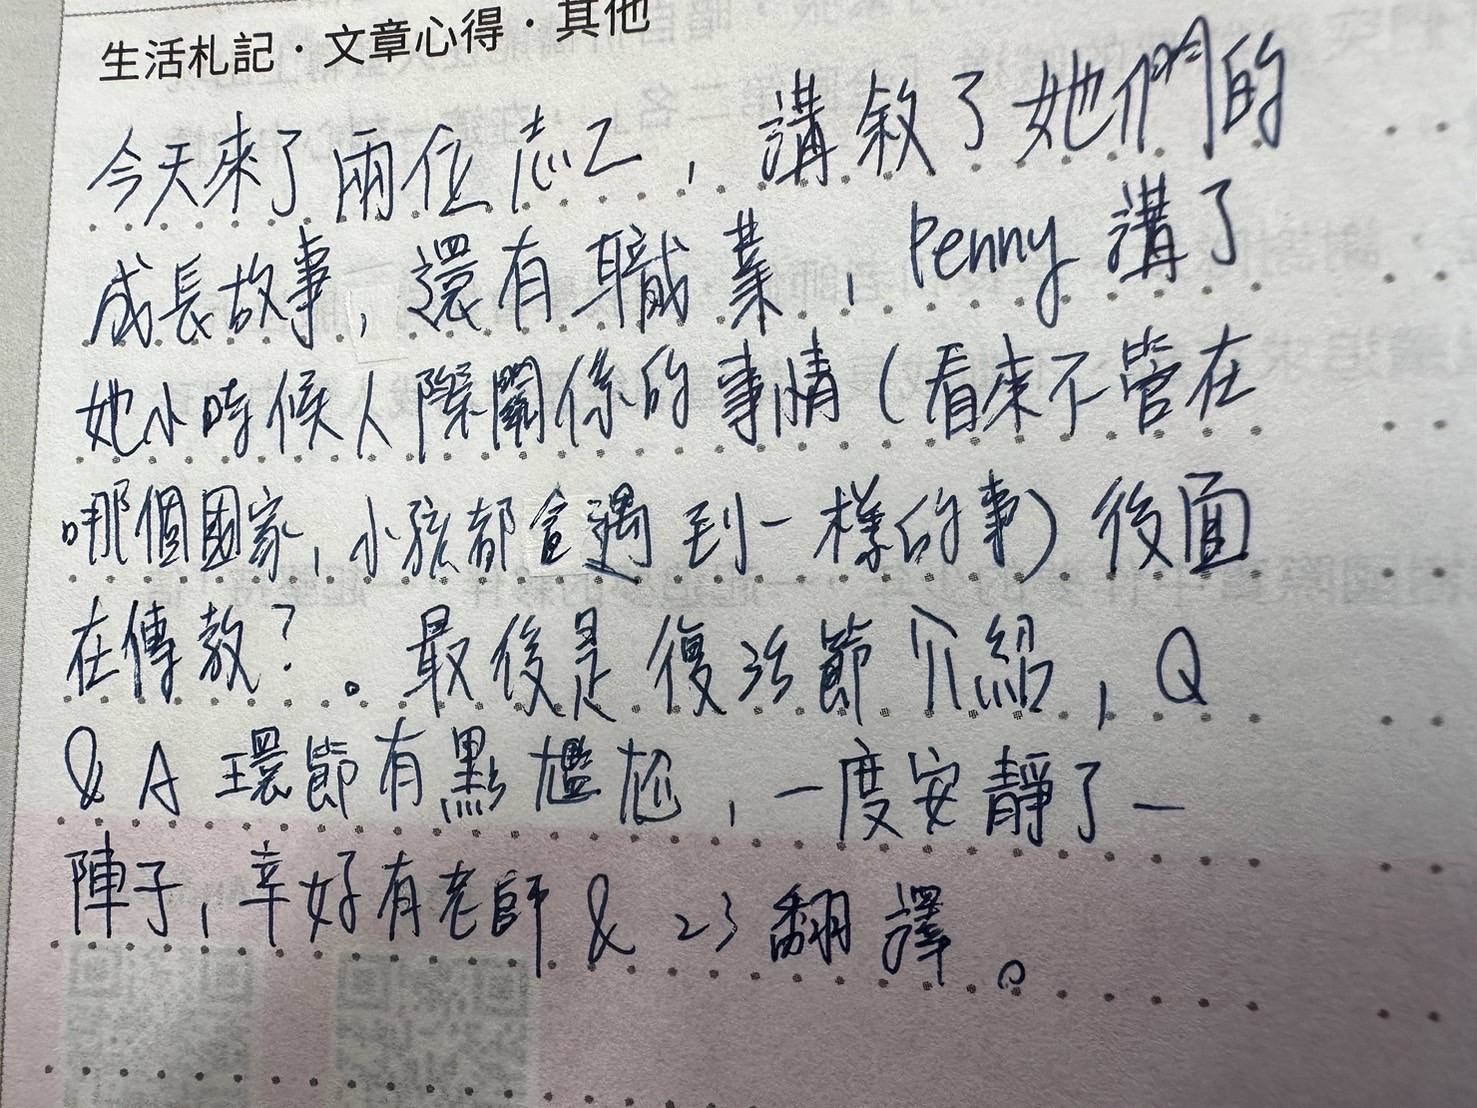 生活札記・文章心得・其他
今天來了兩位志工，講敘了她們的
成長故事，還有職業，Penny 講了
她小時候人際關係的事情（看來不管在
哪個國家，小孩都會遇到一樣的事）後面
在傳教？。最後是復活節介紹，Q
& A 環節有點尷尬，一度安靜了一
陣子，辛好有老師 & 23 翻譯。